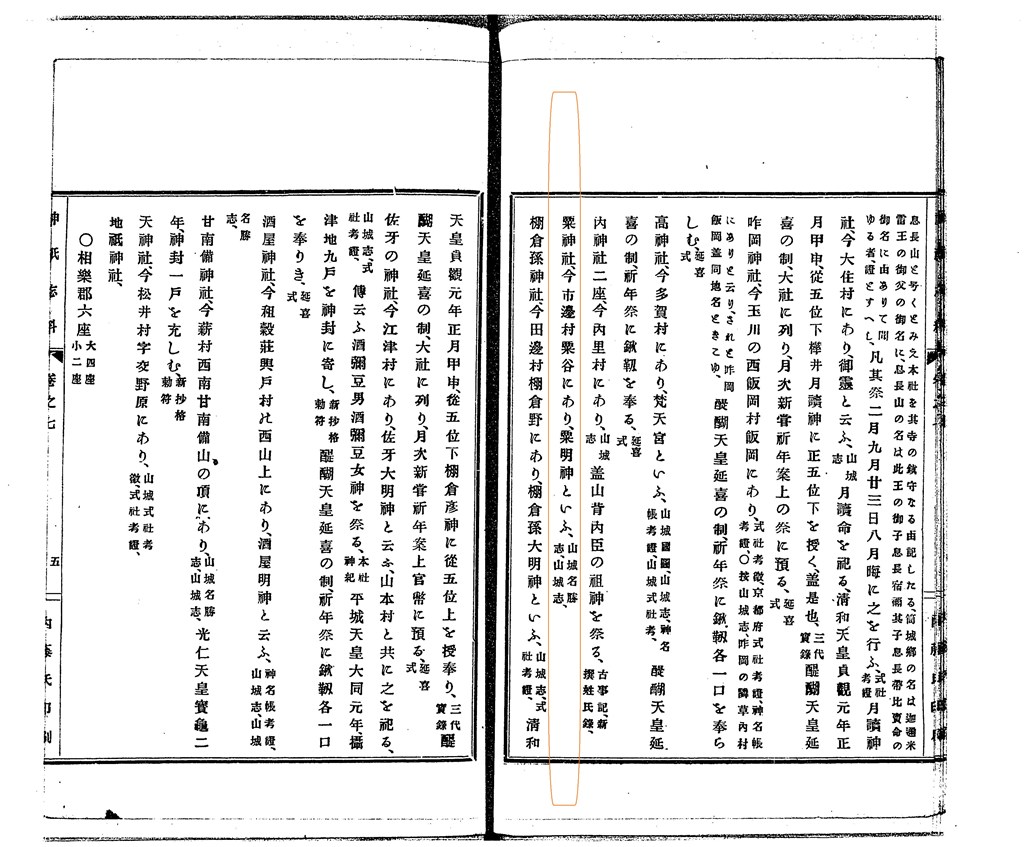 息長山と号くとみえ本社を其寺の鎮守なる由記したる、筒城郷の名は迦邇米
雷王の御父の御名に、息長山の名は此王の御子息長宿禰其子息長帯比賣命の
御名に由ありて聞
ゆる者、證とすへし、凡其祭二月九月廿三日八月晦に之を行ふ、式社
考證、月讀神
社、今大住村にあり、御靈と云ふ、山城
志、月讀命を祀る、清和天皇貞觀元年正
月甲申、從五位下樺井月讀神に正五位下を授く、盖是也、三代
實錄醍醐天皇延
喜の制、大社に列り、月次新嘗祈年案上の祭に預る、延喜
式
咋岡神社、今玉川の西飯岡村飯岡にあり、式社考徵、京都府式社考證、神名帳
考證、〇按山城志、咋岡の隣草內村
にありと云り、されと咋岡
飯岡盖同地名ときこゆ、醍醐天皇延喜の制、祈年祭に鍬靱各一口を奉ら
しむ、延喜
式
高神社、今多賀村にあり、梵天宮といふ、山城國圖、山城志、神名
帳考證、山城式社考、醍醐天皇延
喜の制、祈年祭に鍬靱を奉る、延喜
式
內神社二座、今內里村にあり、山城
志盖山背內臣の祖神を祭る、古事記新
撰姓氏錄、
粟神社、今市邊村粟谷にあり、粟明神といふ、山城名勝
志、山城志、
棚倉孫神社、今田邊村棚倉野にあり、棚倉孫大明神といふ、山城志、式
社考證、清和
天皇貞觀元年正月甲申、從五位下棚倉彥神に從五位上を授奉り、三代
實錄醍
醐天皇延喜の制、大社に列り、月次新嘗祈年案上官幣に預る、延喜
式
佐牙の神社、今江津村にあり、佐牙大明神と云ふ、山本村と共に之を祀る、
山城志、式
社考證、傳云ふ酒彌豆男酒彌豆女神を祭る、本社
神紀平城天皇大同元年、攝
津地九戶を神封に寄し、新抄格
勅符醍醐天皇延喜の制、祈年祭に鍬靱各一口
を奉りき、延喜
式
酒屋神社、今和穀莊興戶村の西山上にあり、酒屋明神と云ふ、神名帳考證、
山城志、山城
名勝
志、
甘南備神社、今薪村西南甘南備山の頂にあり、山城名勝
志、山城志、光仁天皇寶龜二
年、神封一戶を充しむ、新抄格
勅符
天神社、今松井村字交野原にあり、山城式社考
徵、式社考證、
地祇神社、
〇相樂郡六座大四座
小二座
神祇志料
卷之七
五